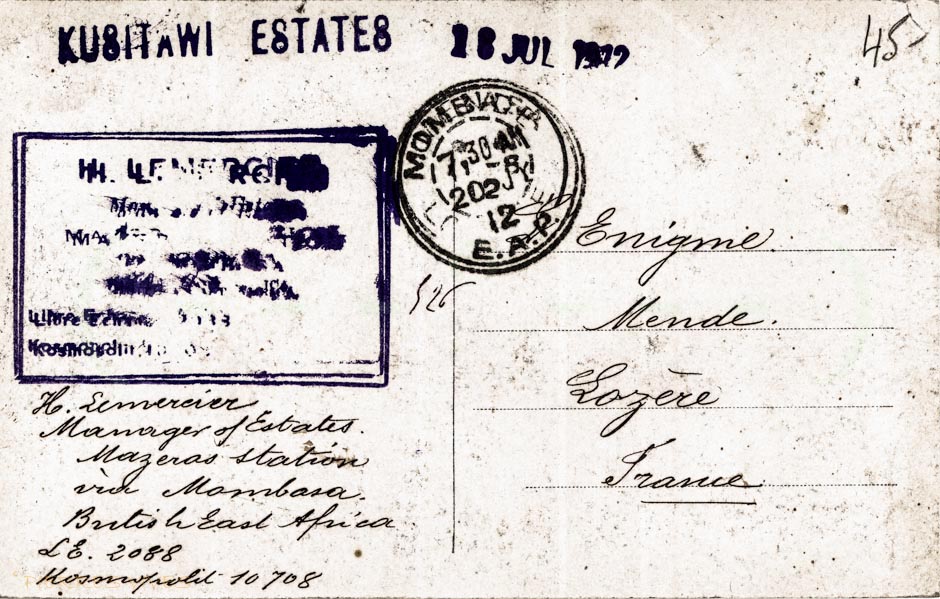 KUSITAWI ESTATES 18 JUL 1912
45-
MOMBASA
7.30 AM
20 JY
12
E.A.P.
H. LEMERCIER
Libre Echange
Kosmopolit
526
H. Lemercier
Manager of Estates.
Mazeras Station
viâ Mombasa.
British East Africa
L.E. 2088
Kosmopolit 10708
Enigme.
Mende.
Lozère
France